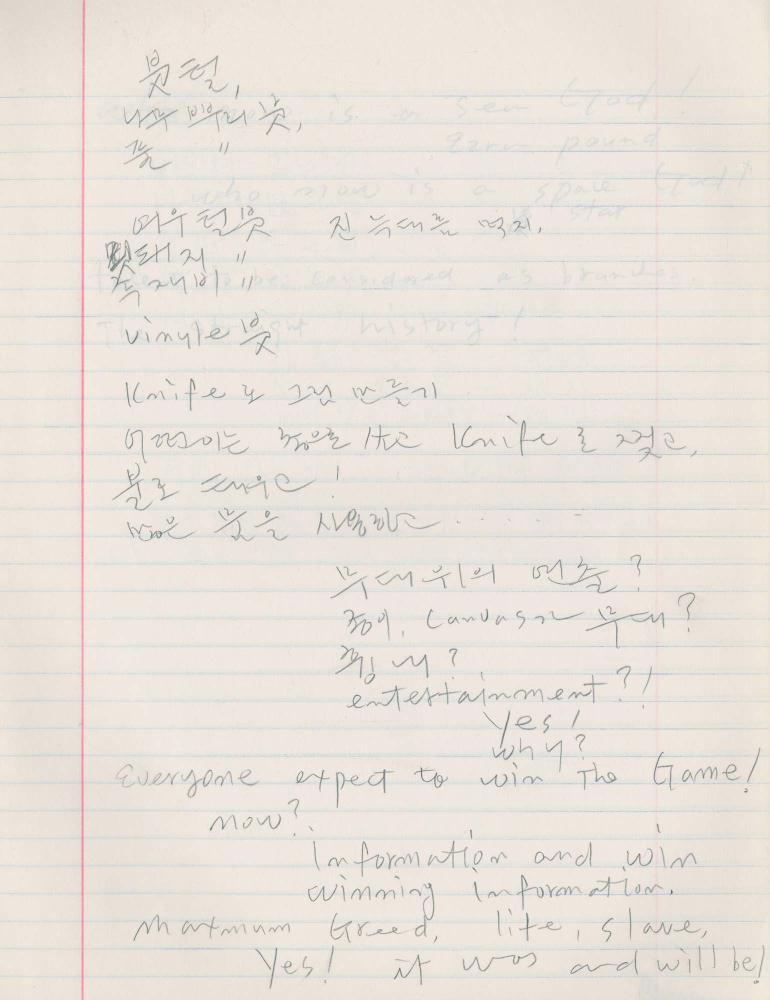 붓털,
나무 뿌리 붓,
풀 〃
여우 털 붓 진 늑대를 먹지,
돼지 〃
족재비 〃
vinyle 붓
Knife 로 그림 만들기
종으로 Knife 로 찢고,
불로 태우고!
많은 붓을 사용하고 . . . . . -
무대위의 연출?
종이, Canvas가 무대?
entertainment?!
Yes!
why?
Everyone expect to win The Game!
now?
Information and win
winning information.
Maxmum Greed, life, slave,
Yes! it was and will be!
is a Sen God!
Ezra pound
who now is a space God!
star
be considered as branches.
history!